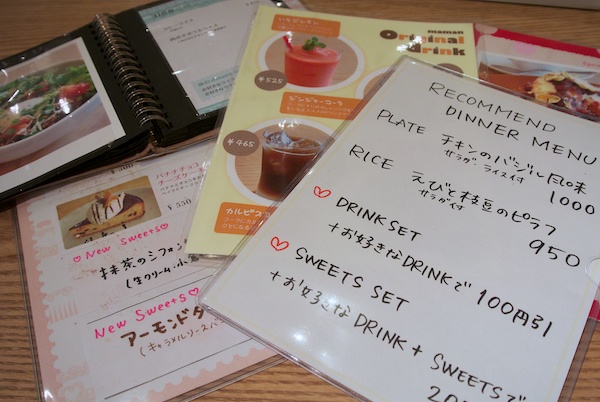 maman
Original
drink
いちごレモン
¥525
ジンジャーコーラ
¥465
カルピス
バナナチョコ
チーズケーキ
¥550
♡New Sweets♡
抹茶のシフォン
(生クリーム・小
New Sweets♡
アーモンドタ
(キャラメルソース
RECOMMEND
DINNER MENU
PLATE チキンのバジル風味
サラダ・ライス付 1000
RICE えびと枝豆のピラフ
サラダ付 950
♡ DRINK SET
+お好きなDRINKで 100円引
♡ SWEETS SET
+お好きなDRINK+SWEETSで
20